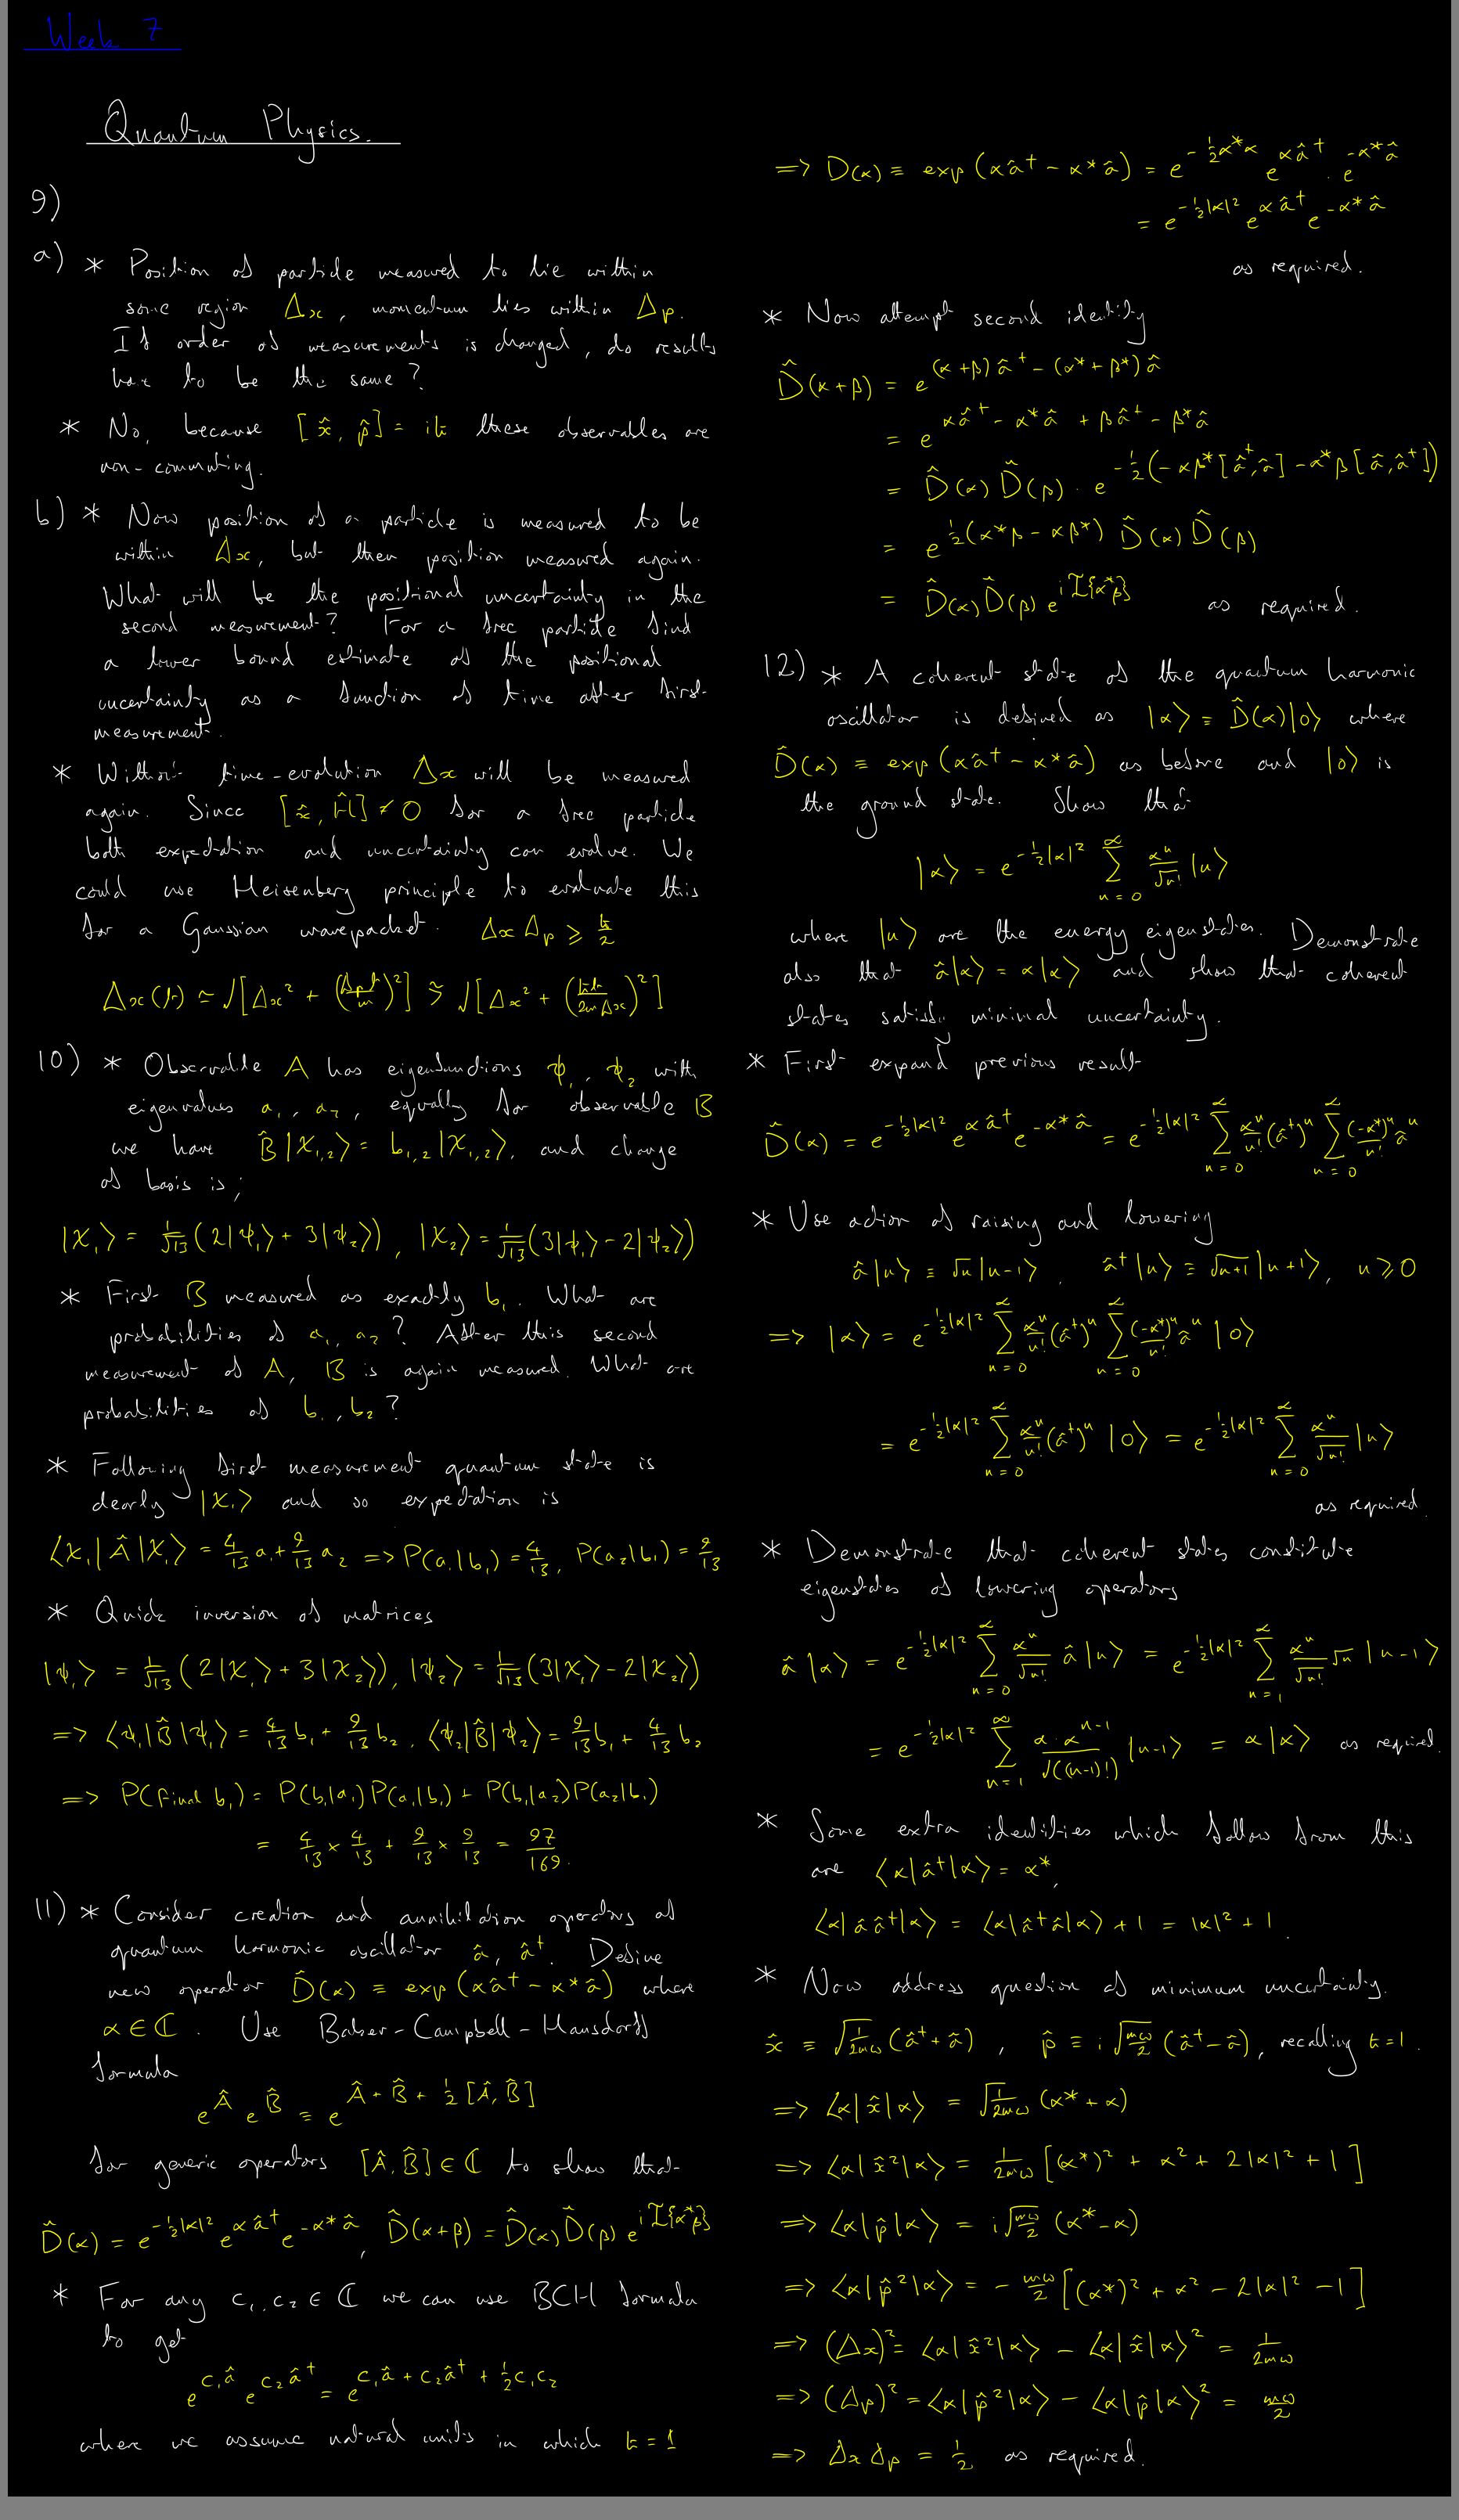 Week 7
Quantum Physics.
9)
a) * Position of particle measured to lie within
some region Δx, momentum lies within Δp.
If order of measurements is changed, do results
have to be the same?
* No, because [x̂, p̂] = iħ these observables are
non-commuting.
b) * Now position of a particle is measured to be
within Δx, but then position measured again.
What will be the positional uncertainty in the
second measurement? For a free particle find
a lower bound estimate of the positional
uncertainty as a function of time after first
measurement.
* Without time-evolution Δx will be measured
again. Since [x̂, Ĥ] ≠ 0 for a free particle
both expectation and uncertainty can evolve. We
could use Heisenberg principle to evaluate this
for a Gaussian wavepacket. Δx Δp ≥ ħ/2
Δx(t) ≃ √[Δx² + (Δp t/m)²] ≳ √[Δx² + (ħt/2mΔx)²]
10) * Observable A has eigenfunctions ψ₁, ψ₂ with
eigenvalues a₁, a₂, equally for observable B
we have B̂|χ₁,₂⟩ = b₁,₂|χ₁,₂⟩, and change
of basis is;
|χ₁⟩ = 1/√13 (2|ψ₁⟩ + 3|ψ₂⟩), |χ₂⟩ = 1/√13 (3|ψ₁⟩ - 2|ψ₂⟩)
* First B measured as exactly b₁. What are
probabilities of a₁, a₂? After this second
measurement of A, B is again measured. What are
probabilities of b₁, b₂?
* Following first measurement quantum state is
clearly |χ₁⟩ and so expectation is
⟨χ₁|Â|χ₁⟩ = 4/13 a₁ + 9/13 a₂ => P(a₁|b₁) = 4/13, P(a₂|b₁) = 9/13
* Quick inversion of matrices
|ψ₁⟩ = 1/√13 (2|χ₁⟩ + 3|χ₂⟩), |ψ₂⟩ = 1/√13 (3|χ₁⟩ - 2|χ₂⟩)
=> ⟨ψ₁|B̂|ψ₁⟩ = 4/13 b₁ + 9/13 b₂, ⟨ψ₂|B̂|ψ₂⟩ = 9/13 b₁ + 4/13 b₂
=> P(final b₁) = P(b₁|a₁)P(a₁|b₁) + P(b₁|a₂)P(a₂|b₁)
= 4/13 × 4/13 + 9/13 × 9/13 = 97/169.
11) * Consider creation and annihilation operators of
quantum harmonic oscillator â, â†. Define
new operator D̂(α) ≡ exp(αâ† - α*â) where
α ∈ ℂ. Use Baker-Campbell-Hausdorff
formula
e^Â e^B̂ = e^(Â + B̂ + ½[Â, B̂])
for generic operators [Â, B̂] ∈ ℂ to show that
D̂(α) = e^(-½|α|²) e^(αâ†) e^(-α*â), D̂(α+β) = D̂(α)D̂(β) e^(iI{α*β})
* For any c₁, c₂ ∈ ℂ we can use BCH formula
to get
e^(c₁â) e^(c₂â†) = e^(c₁â + c₂â† + ½c₁c₂)
where we assume natural units in which ħ = 1
=> D(α) ≡ exp(αâ† - α*â) = e^(-½α*α) e^(αâ†) . e^(-α*â)
= e^(-½|α|²) e^(αâ†) e^(-α*â)
as required.
* Now attempt second identity
D̂(α+β) = e^((α+β)â† - (α*+β*)â)
= e^(αâ† - α*â + βâ† - β*â)
= D̂(α)D̂(β) . e^(-½(-αβ*[â†,â] - α*β[â,â†]))
= e^(½(α*β - αβ*)) D̂(α)D̂(β)
= D̂(α)D̂(β) e^(iI{α*β}) as required.
12) * A coherent state of the quantum harmonic
oscillator is defined as |α⟩ = D̂(α)|0⟩ where
D̂(α) ≡ exp(αâ† - α*â) as before and |0⟩ is
the ground state. Show that
|α⟩ = e^(-½|α|²) ∑_{n=0}^∞ αⁿ/√n! |n⟩
where |n⟩ are the energy eigenstates. Demonstrate
also that â|α⟩ = α|α⟩ and show that coherent
states satisfy minimal uncertainty.
* First expand previous result
D̂(α) = e^(-½|α|²) e^(αâ†) e^(-α*â) = e^(-½|α|²) ∑_{n=0}^∞ αⁿ/n! (â†)ⁿ ∑_{n=0}^∞ (-α*)ⁿ/n! âⁿ
* Use action of raising and lowering
â|n⟩ ≡ √n|n-1⟩, â†|n⟩ ≡ √(n+1)|n+1⟩, n ≥ 0
=> |α⟩ = e^(-½|α|²) ∑_{n=0}^∞ αⁿ/n! (â†)ⁿ ∑_{n=0}^∞ (-α*)ⁿ/n! âⁿ |0⟩
= e^(-½|α|²) ∑_{n=0}^∞ αⁿ/n! (â†)ⁿ |0⟩ = e^(-½|α|²) ∑_{n=0}^∞ αⁿ/√n! |n⟩
as required.
* Demonstrate that coherent states constitute
eigenstates of lowering operators
â|α⟩ = e^(-½|α|²) ∑_{n=0}^∞ αⁿ/√n! â|n⟩ = e^(-½|α|²) ∑_{n=1}^∞ αⁿ/√n! √n |n-1⟩
= e^(-½|α|²) ∑_{n=1}^∞ α.α^(n-1)/√((n-1)!) |n-1⟩ = α|α⟩ as required.
* Some extra identities which follow from this
are ⟨α|â†|α⟩ = α*,
⟨α|ââ†|α⟩ = ⟨α|â†â|α⟩ + 1 = |α|² + 1.
* Now address question of minimum uncertainty.
x̂ ≡ √(1/2mω) (â† + â), p̂ ≡ i√(mω/2) (â† - â), recalling ħ = 1.
=> ⟨α|x̂|α⟩ = √(1/2mω) (α* + α)
=> ⟨α|x̂²|α⟩ = 1/2mω [(α*)² + α² + 2|α|² + 1]
=> ⟨α|p̂|α⟩ = i√(mω/2) (α* - α)
=> ⟨α|p̂²|α⟩ = -mω/2 [(α*)² + α² - 2|α|² - 1]
=> (Δx)² = ⟨α|x̂²|α⟩ - ⟨α|x̂|α⟩² = 1/2mω
=> (Δp)² = ⟨α|p̂²|α⟩ - ⟨α|p̂|α⟩² = mω/2
=> Δx Δp = 1/2 as required.